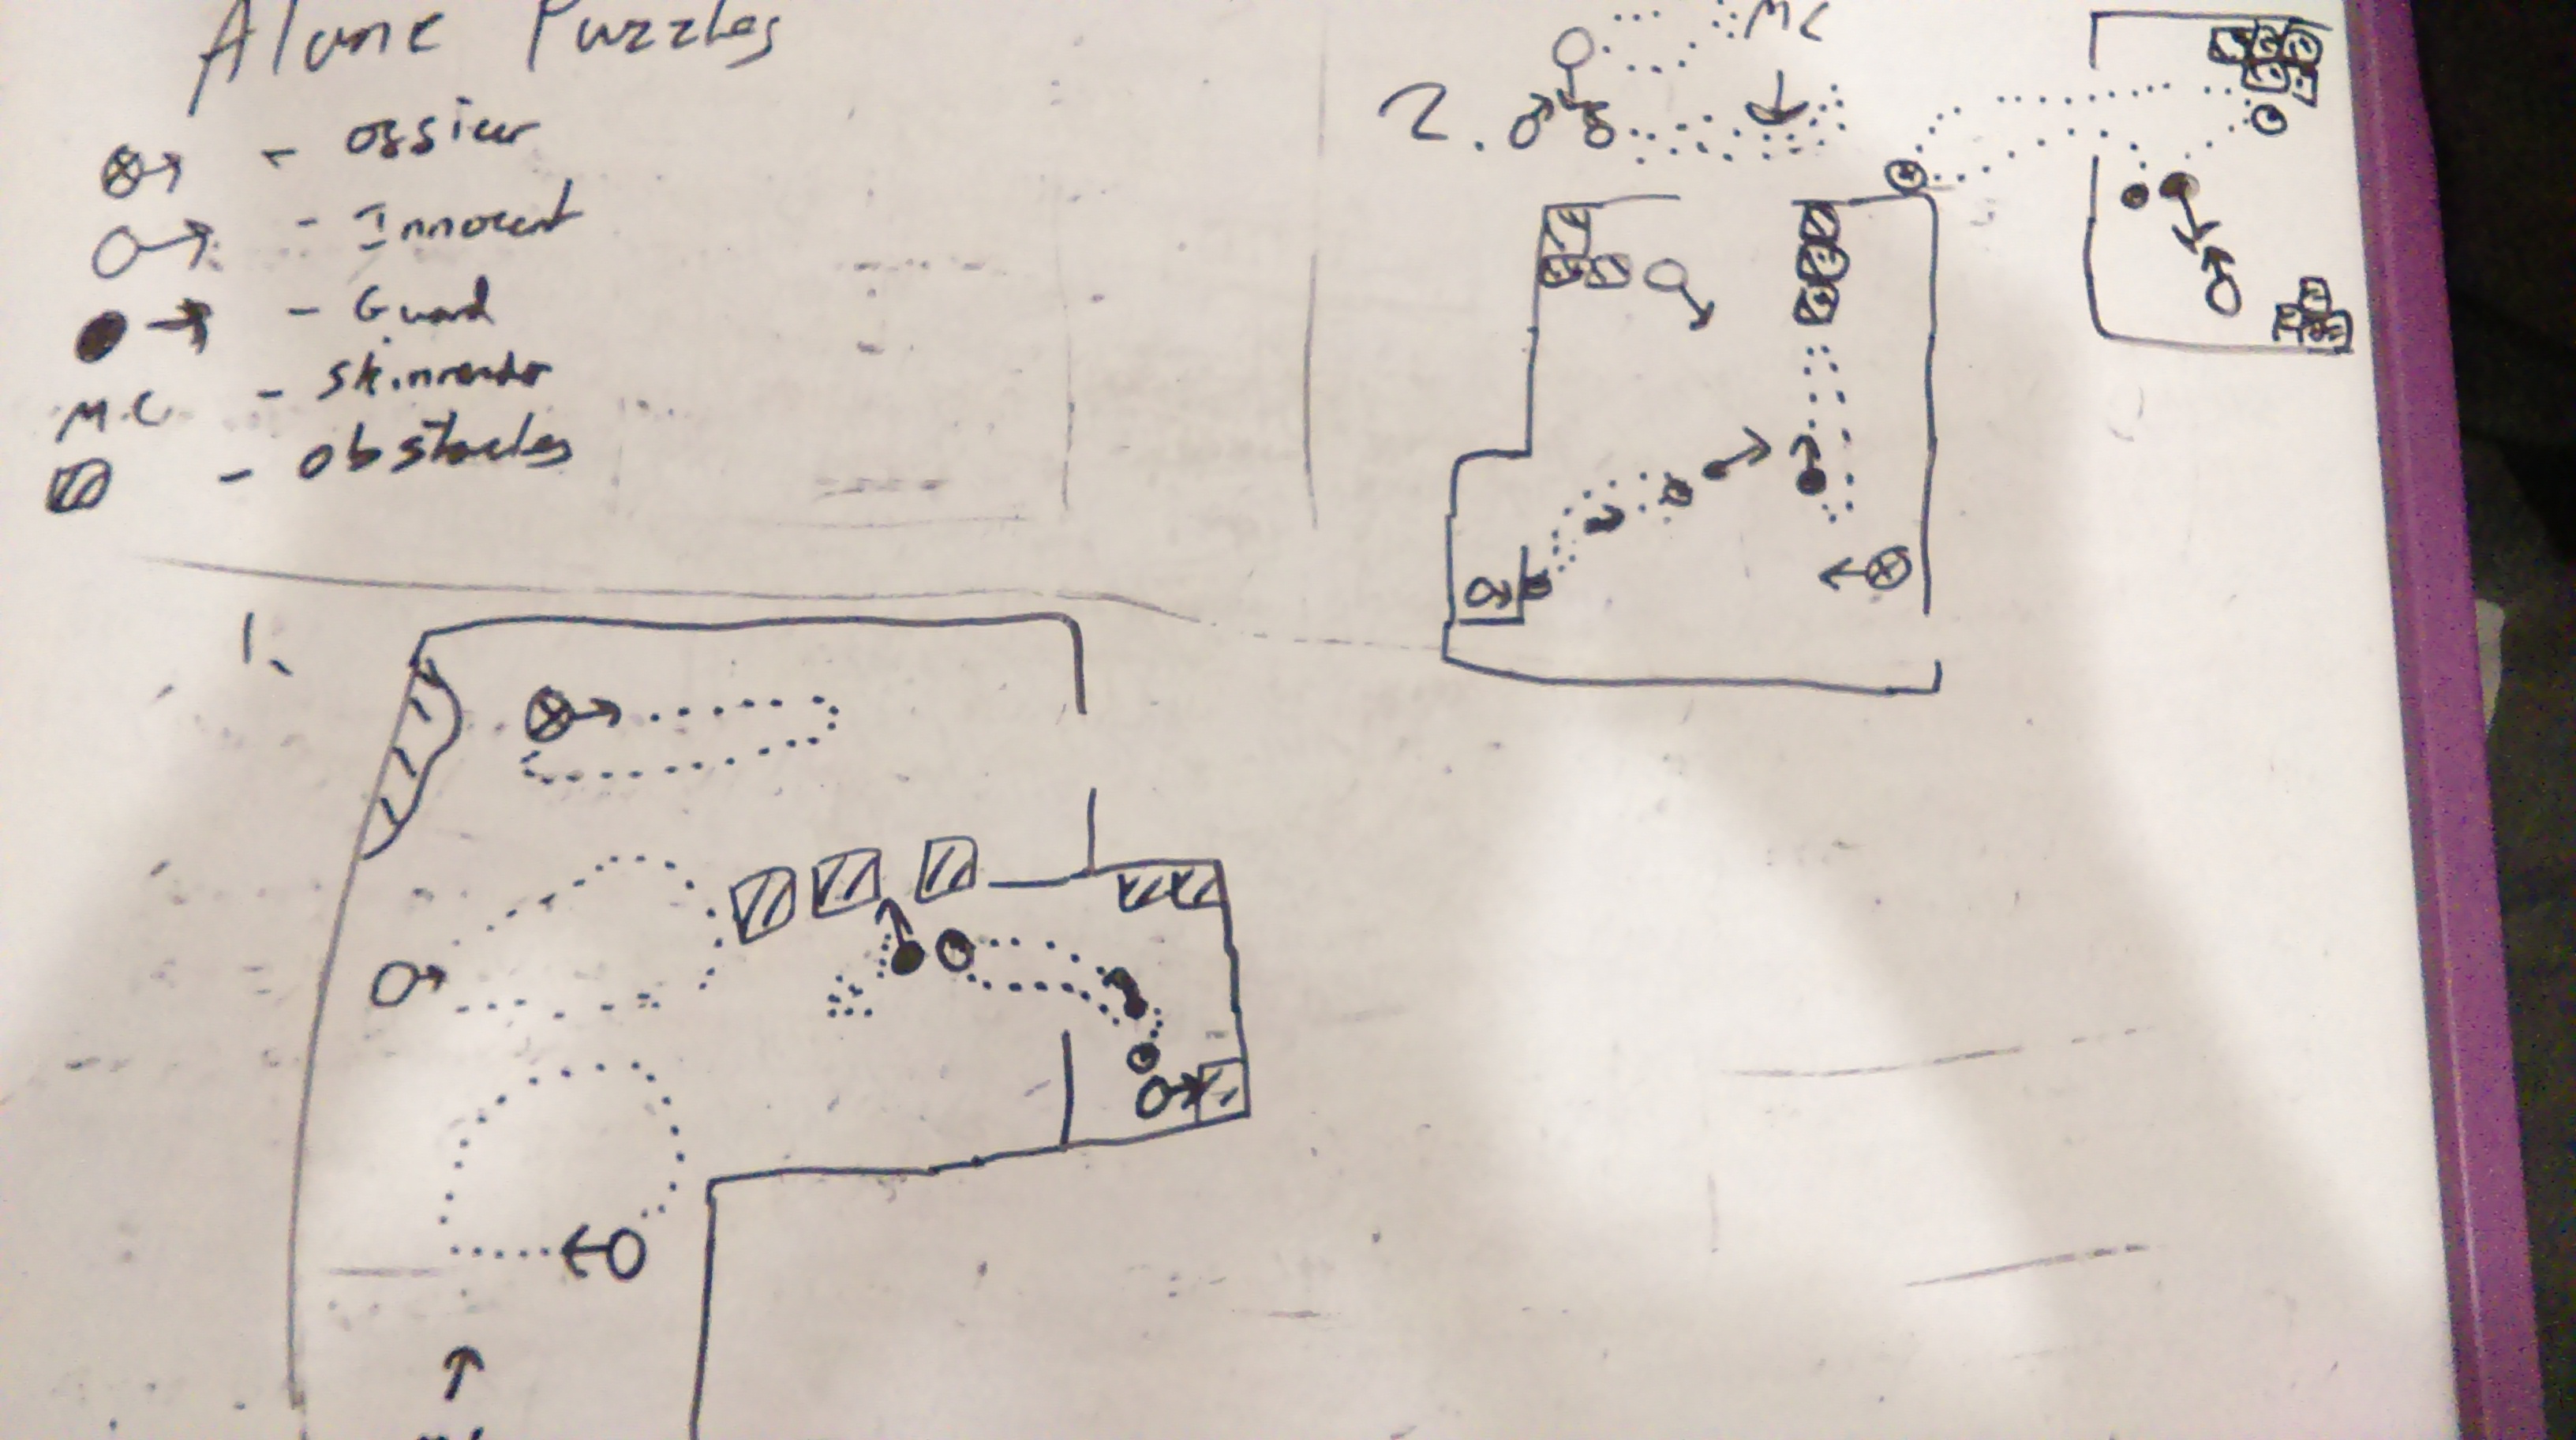 Alone Puzzles
- ossicer
- Innocent
- Guard
M.C - 
- obstacles
1.
2.
MC